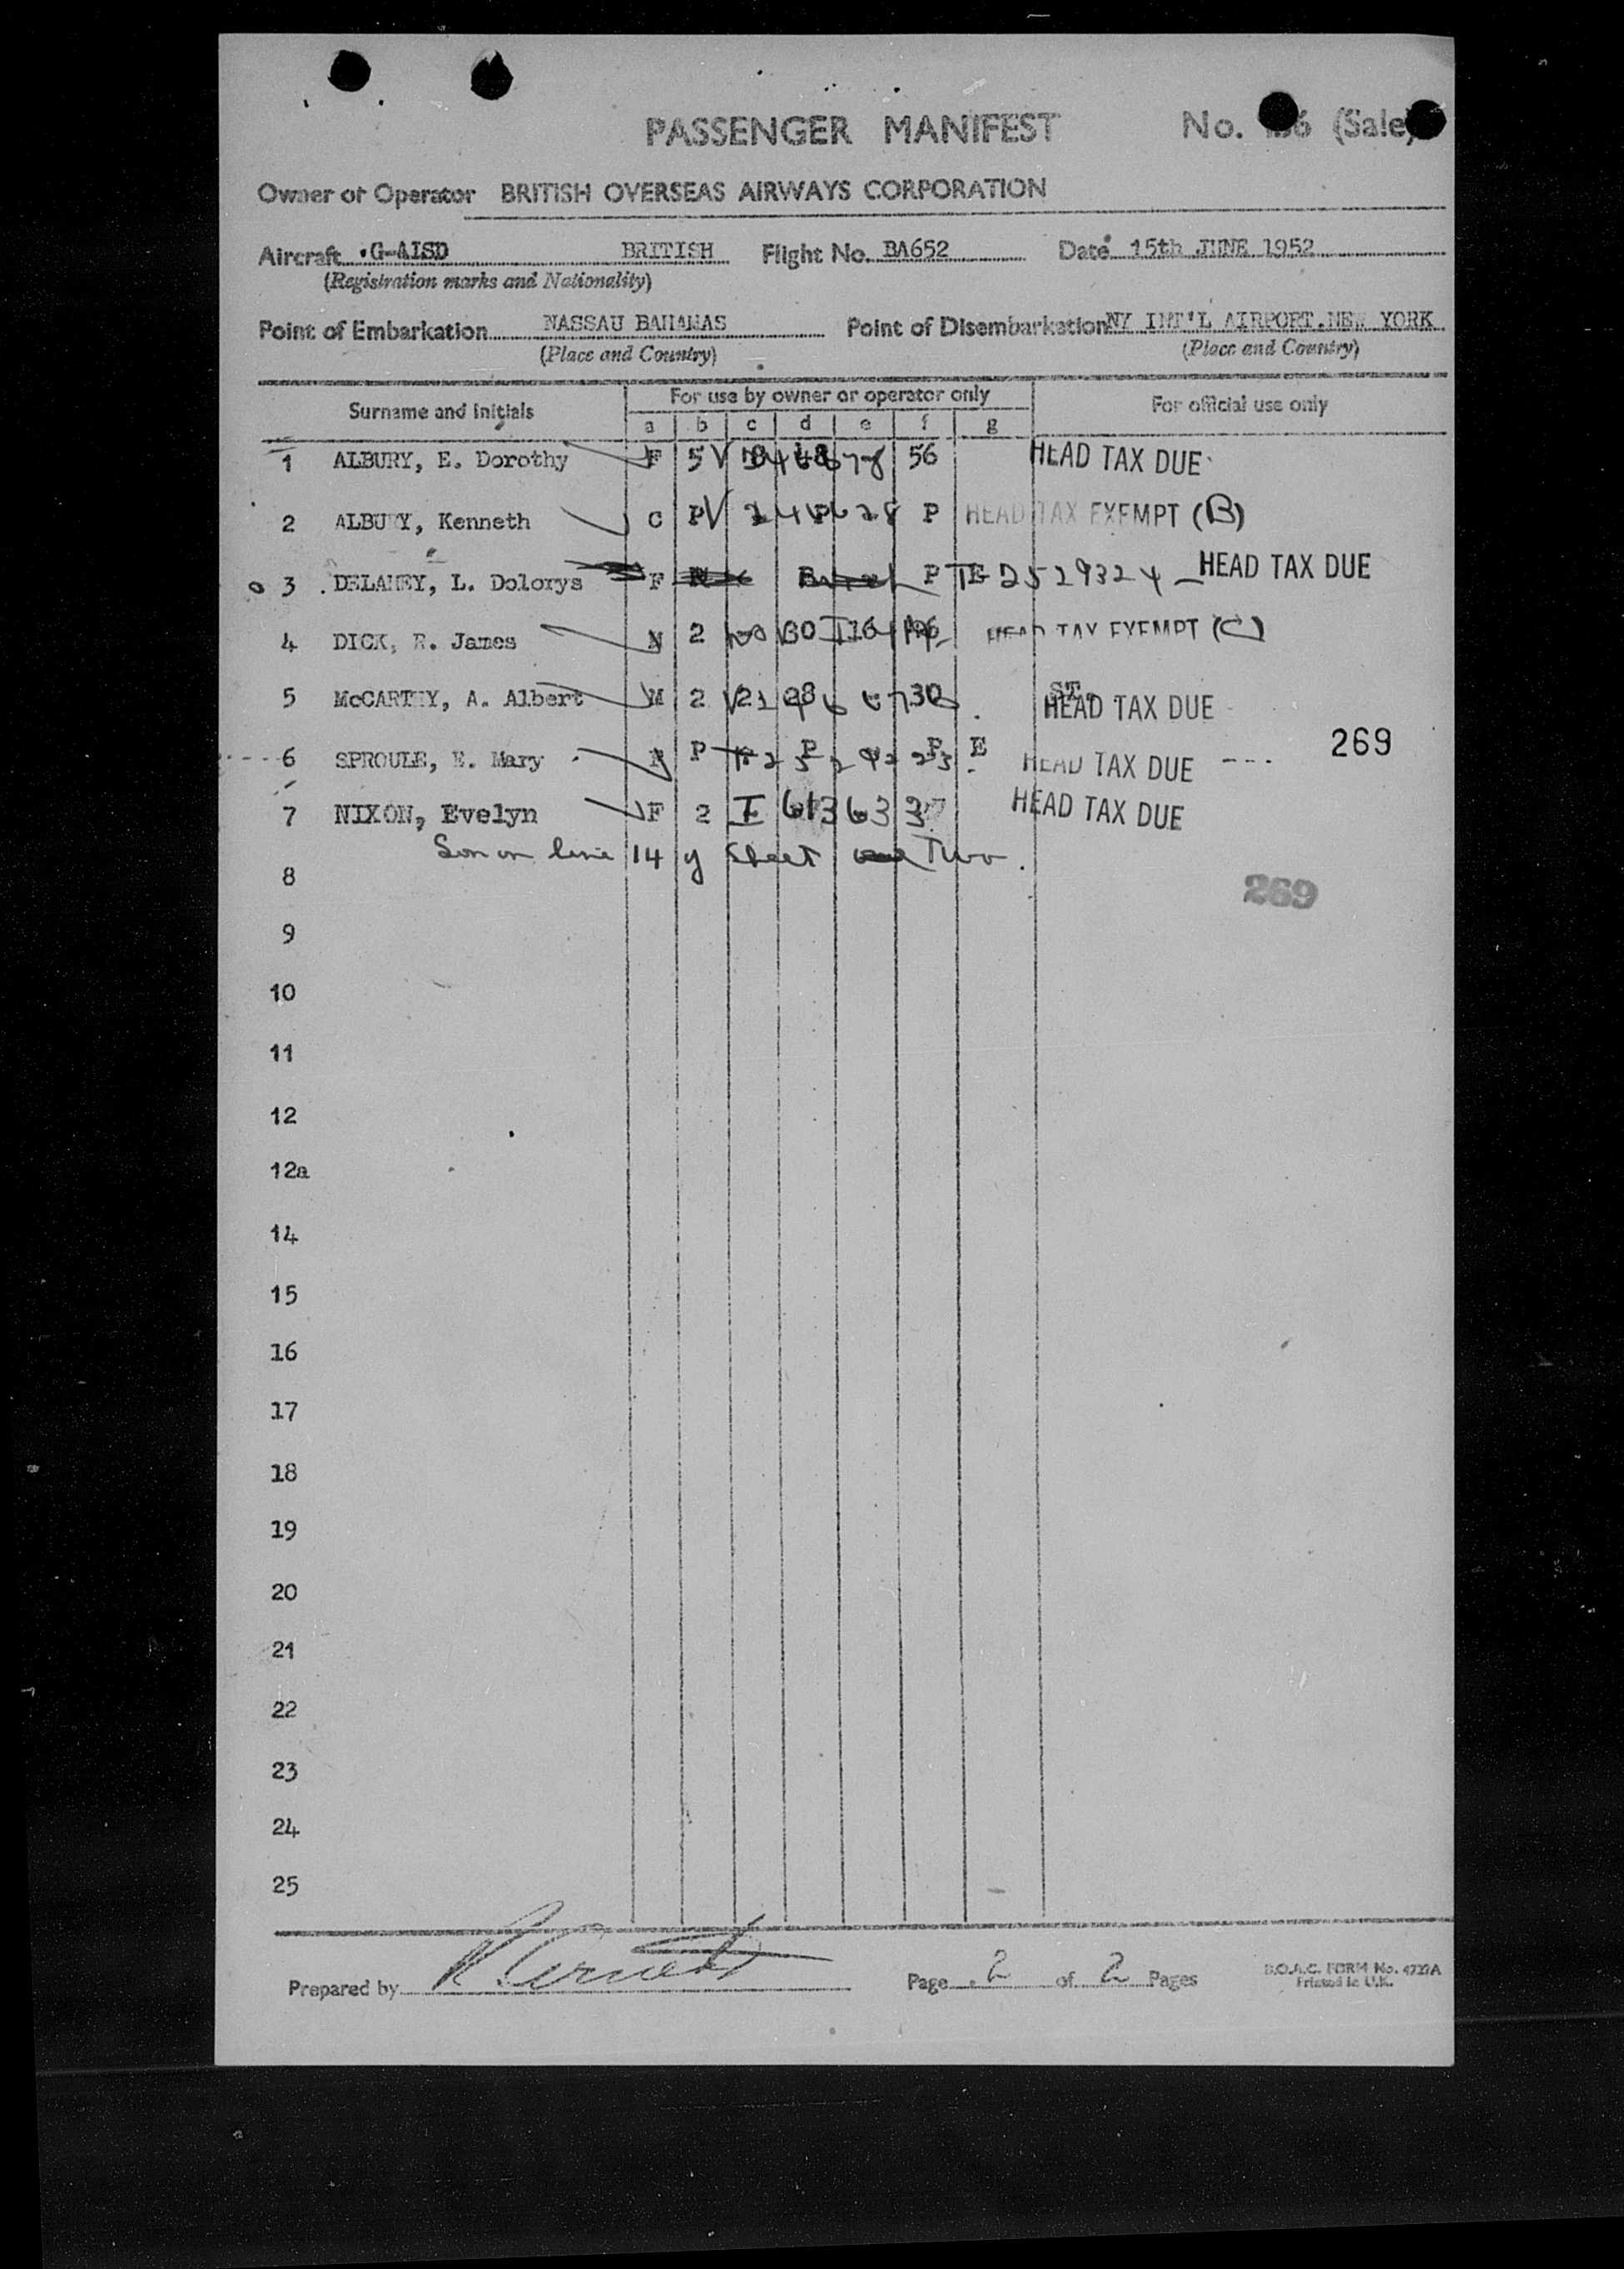 PASSENGER MANIFEST No. (Sale)
Owner or Operator BRITISH OVERSEAS AIRWAYS CORPORATION
Aircraft G-AISD BRITISH Flight No. BA652 Date 15th JUNE 1952
(Registration marks and Nationality)
Point of Embarkation NASSAU BAHAMAS Point of Disembarkation NY INT'L AIRPORT.NEW YORK
(Place and Country) (Place and Country)
Surname and Initials For use by owner or operator only For official use only
a b c d e f g
1 ALBURY, E. Dorothy F 5 56 HEAD TAX DUE
2 ALBURY, Kenneth C P P HEAD TAX EXEMPT (B)
3 DELANEY, L. Dolorys F P 2529324 HEAD TAX DUE
4 DICK, R. James 2 HEAD TAX EXEMPT (C)
5 McCARTHY, A. Albert M 2 30 ST. HEAD TAX DUE
6 SPROULE, E. Mary P P P E HEAD TAX DUE --- 269
7 NIXON, Evelyn F 2 I HEAD TAX DUE
Son on line 14 y Sheet Two.
8
269
9
10
11
12
12a
14
15
16
17
18
19
20
21
22
23
24
25
Prepared by Page 2 of 2 Pages
B.O.A.C. FORM No. 4727A
Printed in U.K.